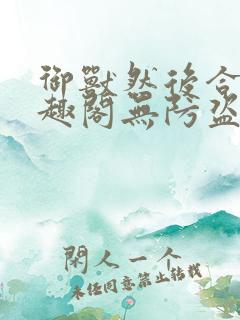 御獸然後含
趣閣無防盜
閑人一个
未经同意禁止转载